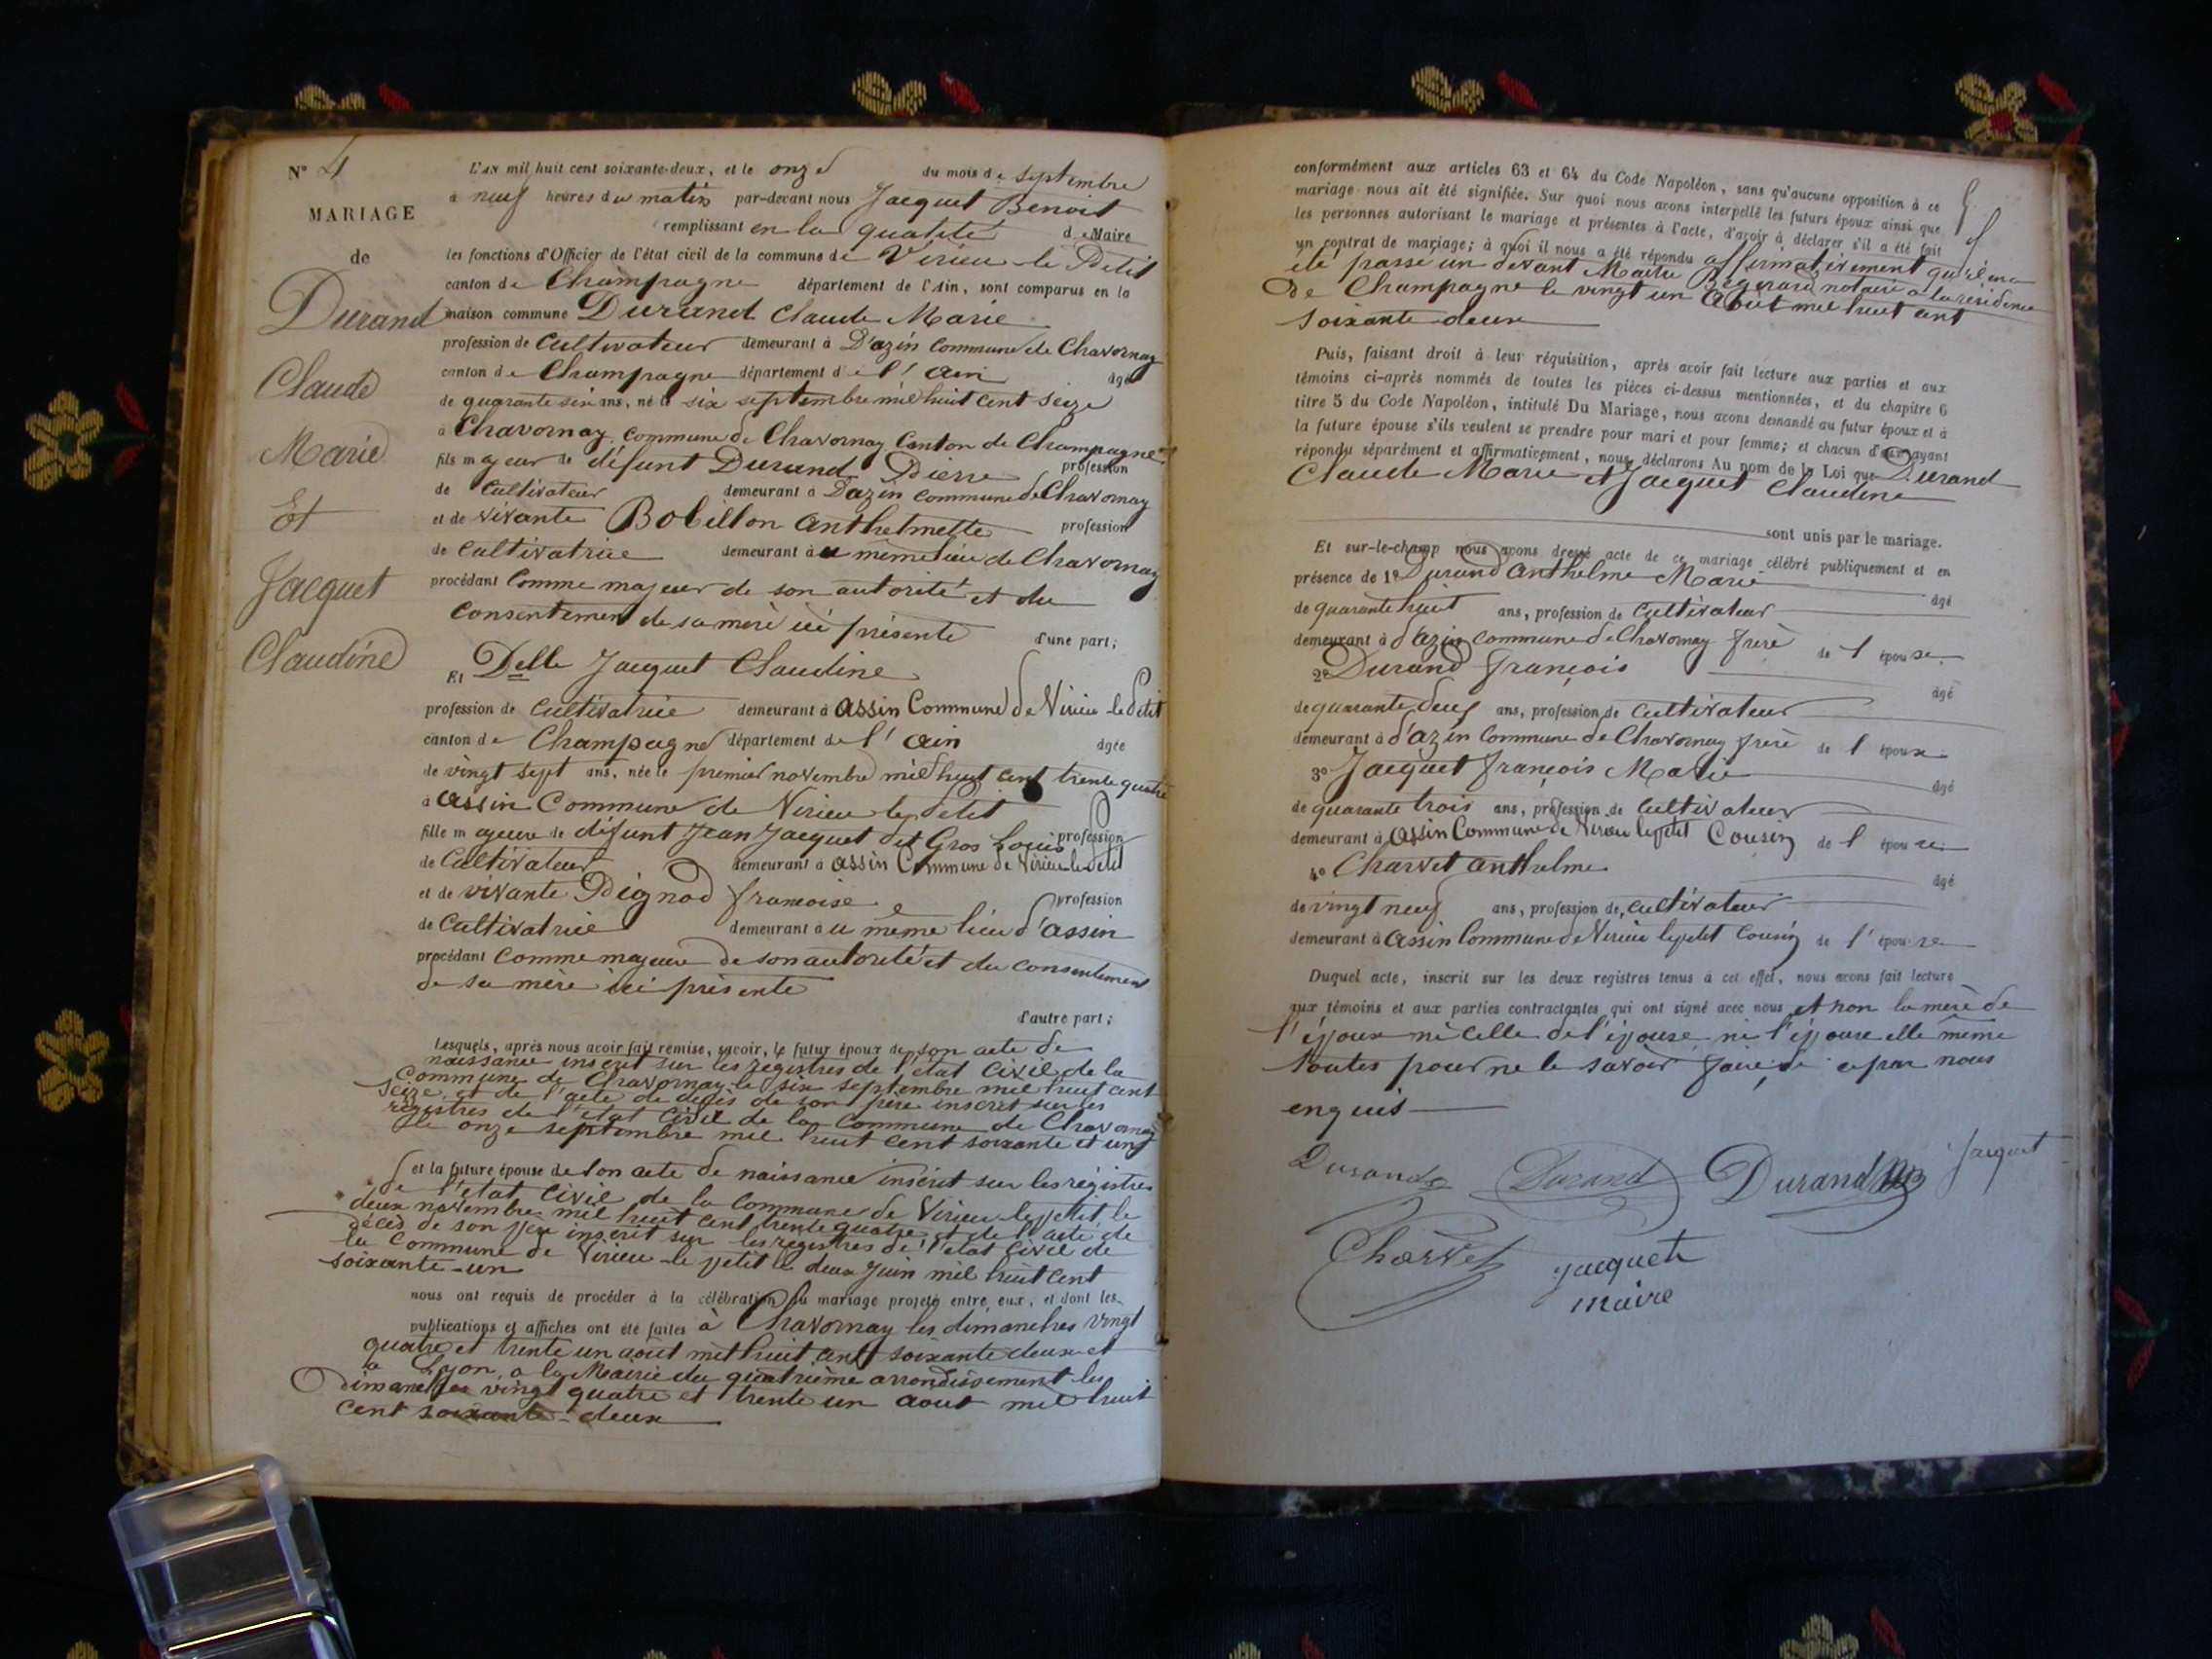 N° 4
MARIAGE
de
Durand
Claude
Marie
Et
Jacquet
Claudine
L'AN mil huit cent soixante-deux, et le onze du mois de septembre
à neuf heures du matin par-devant nous Jacquet Benoit
remplissant en la qualité de Maire
les fonctions d'Officier de l'état civil de la commune de Virieu le Petit
canton de Champagne département de l'Ain, sont comparus en la
maison commune Durand Claude Marie
profession de Cultivateur demeurant à D'azin Commune de Chavornay
canton de Champagne département de l'ain âgé
de quarante six ans, né le six septembre mil huit cent seize
à Chavornay Commune de Chavornay Canton de Champagne
fils majeur de défunt Durand Pierre profession
de Cultivateur demeurant à D'azin Commune de Chavornay
et de vivante Bobillon Anthelmette profession
de Cultivatrice demeurant à u même lieu de Chavornay
procédant Comme majeur de son autorité et du
Consentement de sa mère ici présente d'une part;
Et Delle Jacquet Claudine
profession de Cultivatrice demeurant à Assin Commune de Virieu le Petit
canton de Champagne département de l'ain âgée
de vingt sept ans, née le premier novembre mil huit cent trente quatre
à Assin Commune de Virieu le petit
fille majeure de défunt Jean Jacquet dit Gros Louis profession
de Cultivateur demeurant à Assin Commune de Virieu le Petit
et de vivante Pignod françoise profession
de Cultivatrice demeurant à u même lieu d'assin
procédant Comme majeure de son autorité et du consentement
de sa mère ici présente
d'autre part;
Lesquels, après nous avoir fait remise, savoir, le futur époux de son acte de
naissance inscrit sur les registres de l'état Civil de la
Commune de Chavornay le six septembre mil huit cent
seize et de l'acte de décès de son père inscrit sur les
registres de l'état Civil de la Commune de Chavornay
le onze septembre mil huit cent soixante et un
et la future épouse de son acte de naissance inscrit sur les registres
de l'état Civil de la Commune de Virieu le petit le
deux novembre mil huit cent trente quatre et de l'acte de
décès de son père inscrit sur les registres de l'état Civil de
la Commune de Virieu le petit le deux Juin mil huit cent
soixante-un
nous ont requis de procéder à la célébration du mariage projeté entre eux, et dont les
publications et affiches ont été faites à Chavornay les dimanches vingt
quatre et trente un aout mil huit cent soixante deux et
à Lyon, a la Mairie du quatrième arrondissement les
dimanches vingt quatre et trente un aout mil huit
cent soixante-deux
conformément aux articles 63 et 64 du Code Napoléon, sans qu'aucune opposition à ce
mariage nous ait été signifiée. Sur quoi nous avons interpellé les futurs époux ainsi que
les personnes autorisant le mariage et présentes à l'acte, d'avoir à déclarer s'il a été fait
un contrat de mariage; à quoi il nous a été répondu affirmativement qu'il en a
été passé un devant Maitre notaire a la résidence
de Champagne le vingt un Aout mil huit cent
soixante deux
Puis, faisant droit à leur réquisition, après avoir fait lecture aux parties et aux
témoins ci-après nommés de toutes les pièces ci-dessus mentionnées, et du chapitre 6
titre 5 du Code Napoléon, intitulé Du Mariage, nous avons demandé au futur époux et à
la future épouse s'ils veulent se prendre pour mari et pour femme; et chacun d'eux ayant
répondu séparément et affirmativement, nous déclarons Au nom de la Loi que Durand
Claude Marie et Jacquet Claudine
sont unis par le mariage.
Et sur-le-champ nous avons dressé acte de ce mariage célébré publiquement et en
présence de 1° Durand Anthelme Marie âgé
de quarante huit ans, profession de Cultivateur
demeurant à d'azin Commune de Chavornay frère de l'époux
2° Durand françois âgé
de quarante deux ans, profession de Cultivateur
demeurant à d'azin Commune de Chavornay frère de l'époux
3° Jacquet françois Marie âgé
de quarante trois ans, profession de Cultivateur
demeurant à Assin Commune de Virieu le petit Cousin de l'épouse
4° Charvet Anthelme âgé
de vingt neuf ans, profession de Cultivateur
demeurant à Assin Commune de Virieu le petit Cousin de l'épouse
Duquel acte, inscrit sur les deux registres tenus à cet effet, nous avons fait lecture
aux témoins et aux parties contractantes qui ont signé avec nous et non la mère de
l'époux ni celle de l'épouse ni l'épouse elle même
toutes pour ne le savoir faire de ce par nous
enquis
Durand Durand Durand Jacquet
Charvet Jacquet
maire